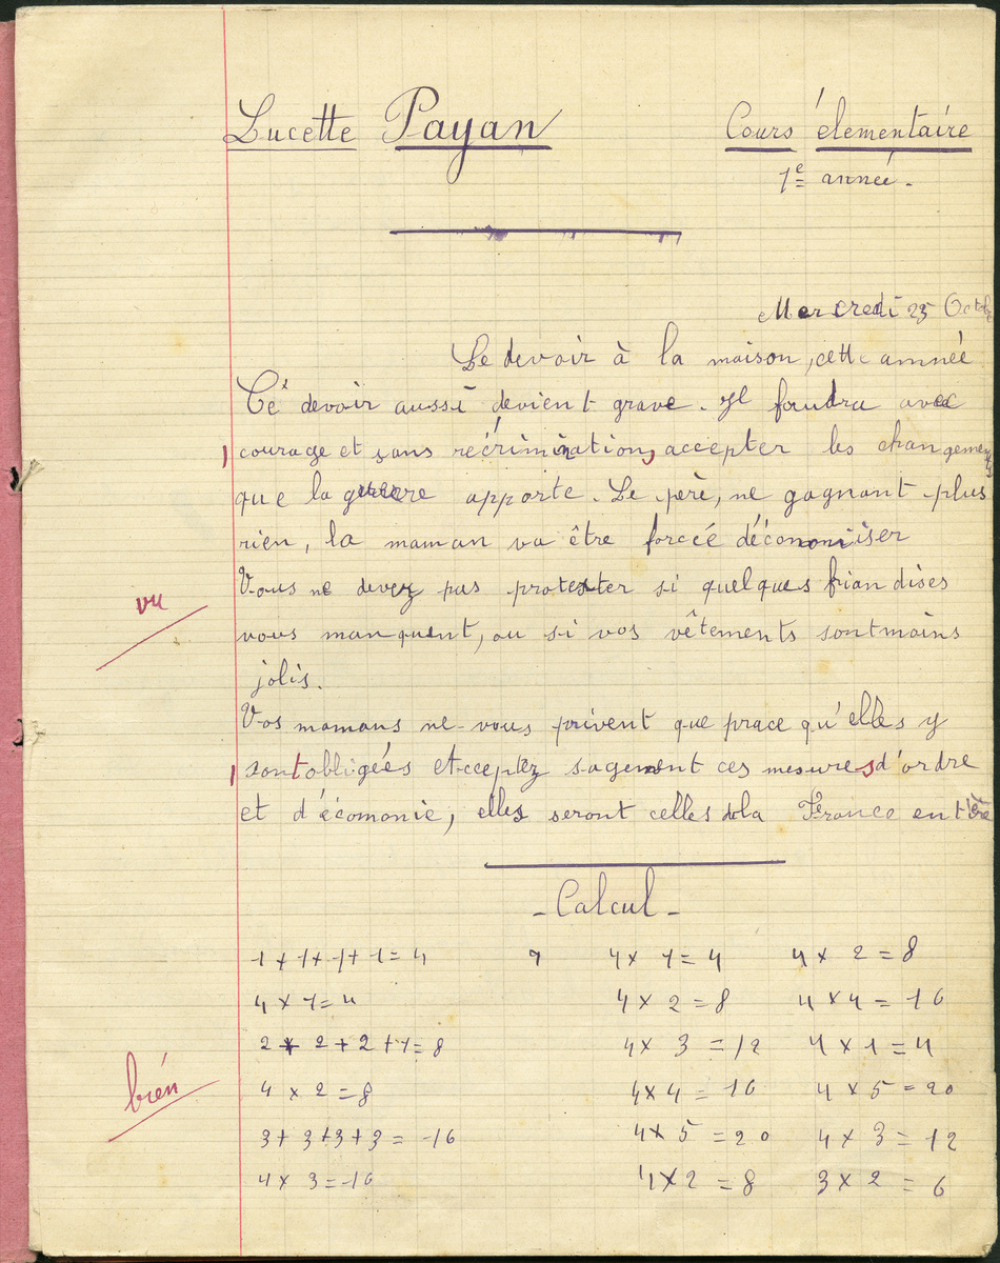 Lucette Payan Cours élementaire
1e année.
Mercredi 25 Octobre
Le devoir à la maison, cette amnée
Cé devoir aussi devient grave. Il faudra avec
courage et sans récrimination, accepter les changements
que la guerre apporte. Le père, ne gagnant plus
rien, la maman va être forcéé déconomiser
Vous ne devez pas protester si quelques friandises
vous manquent, ou si vos vêtements sontmoins
jolis.
Vos mamans ne vous privent que prace qu'elles y
sontobligées Acceptez sagement ces mesures d'ordre
et d'écomonie, elles seront celles dela France entière
- Calcul -
1 + 1 + 1 + 1 = 4 4 x 1 = 4 4 x 2 = 8
4 x 1 = 4 4 x 2 = 8 4 x 4 = 16
2 + 2 + 2 + 1 = 8 4 x 3 = 12 4 x 1 = 4
4 x 2 = 8 4 x 4 = 16 4 x 5 = 20
3 + 3 + 3 + 3 = 16 4 x 5 = 20 4 x 3 = 12
4 x 3 = 16 4 x 2 = 8 3 x 2 = 6
vu
bien